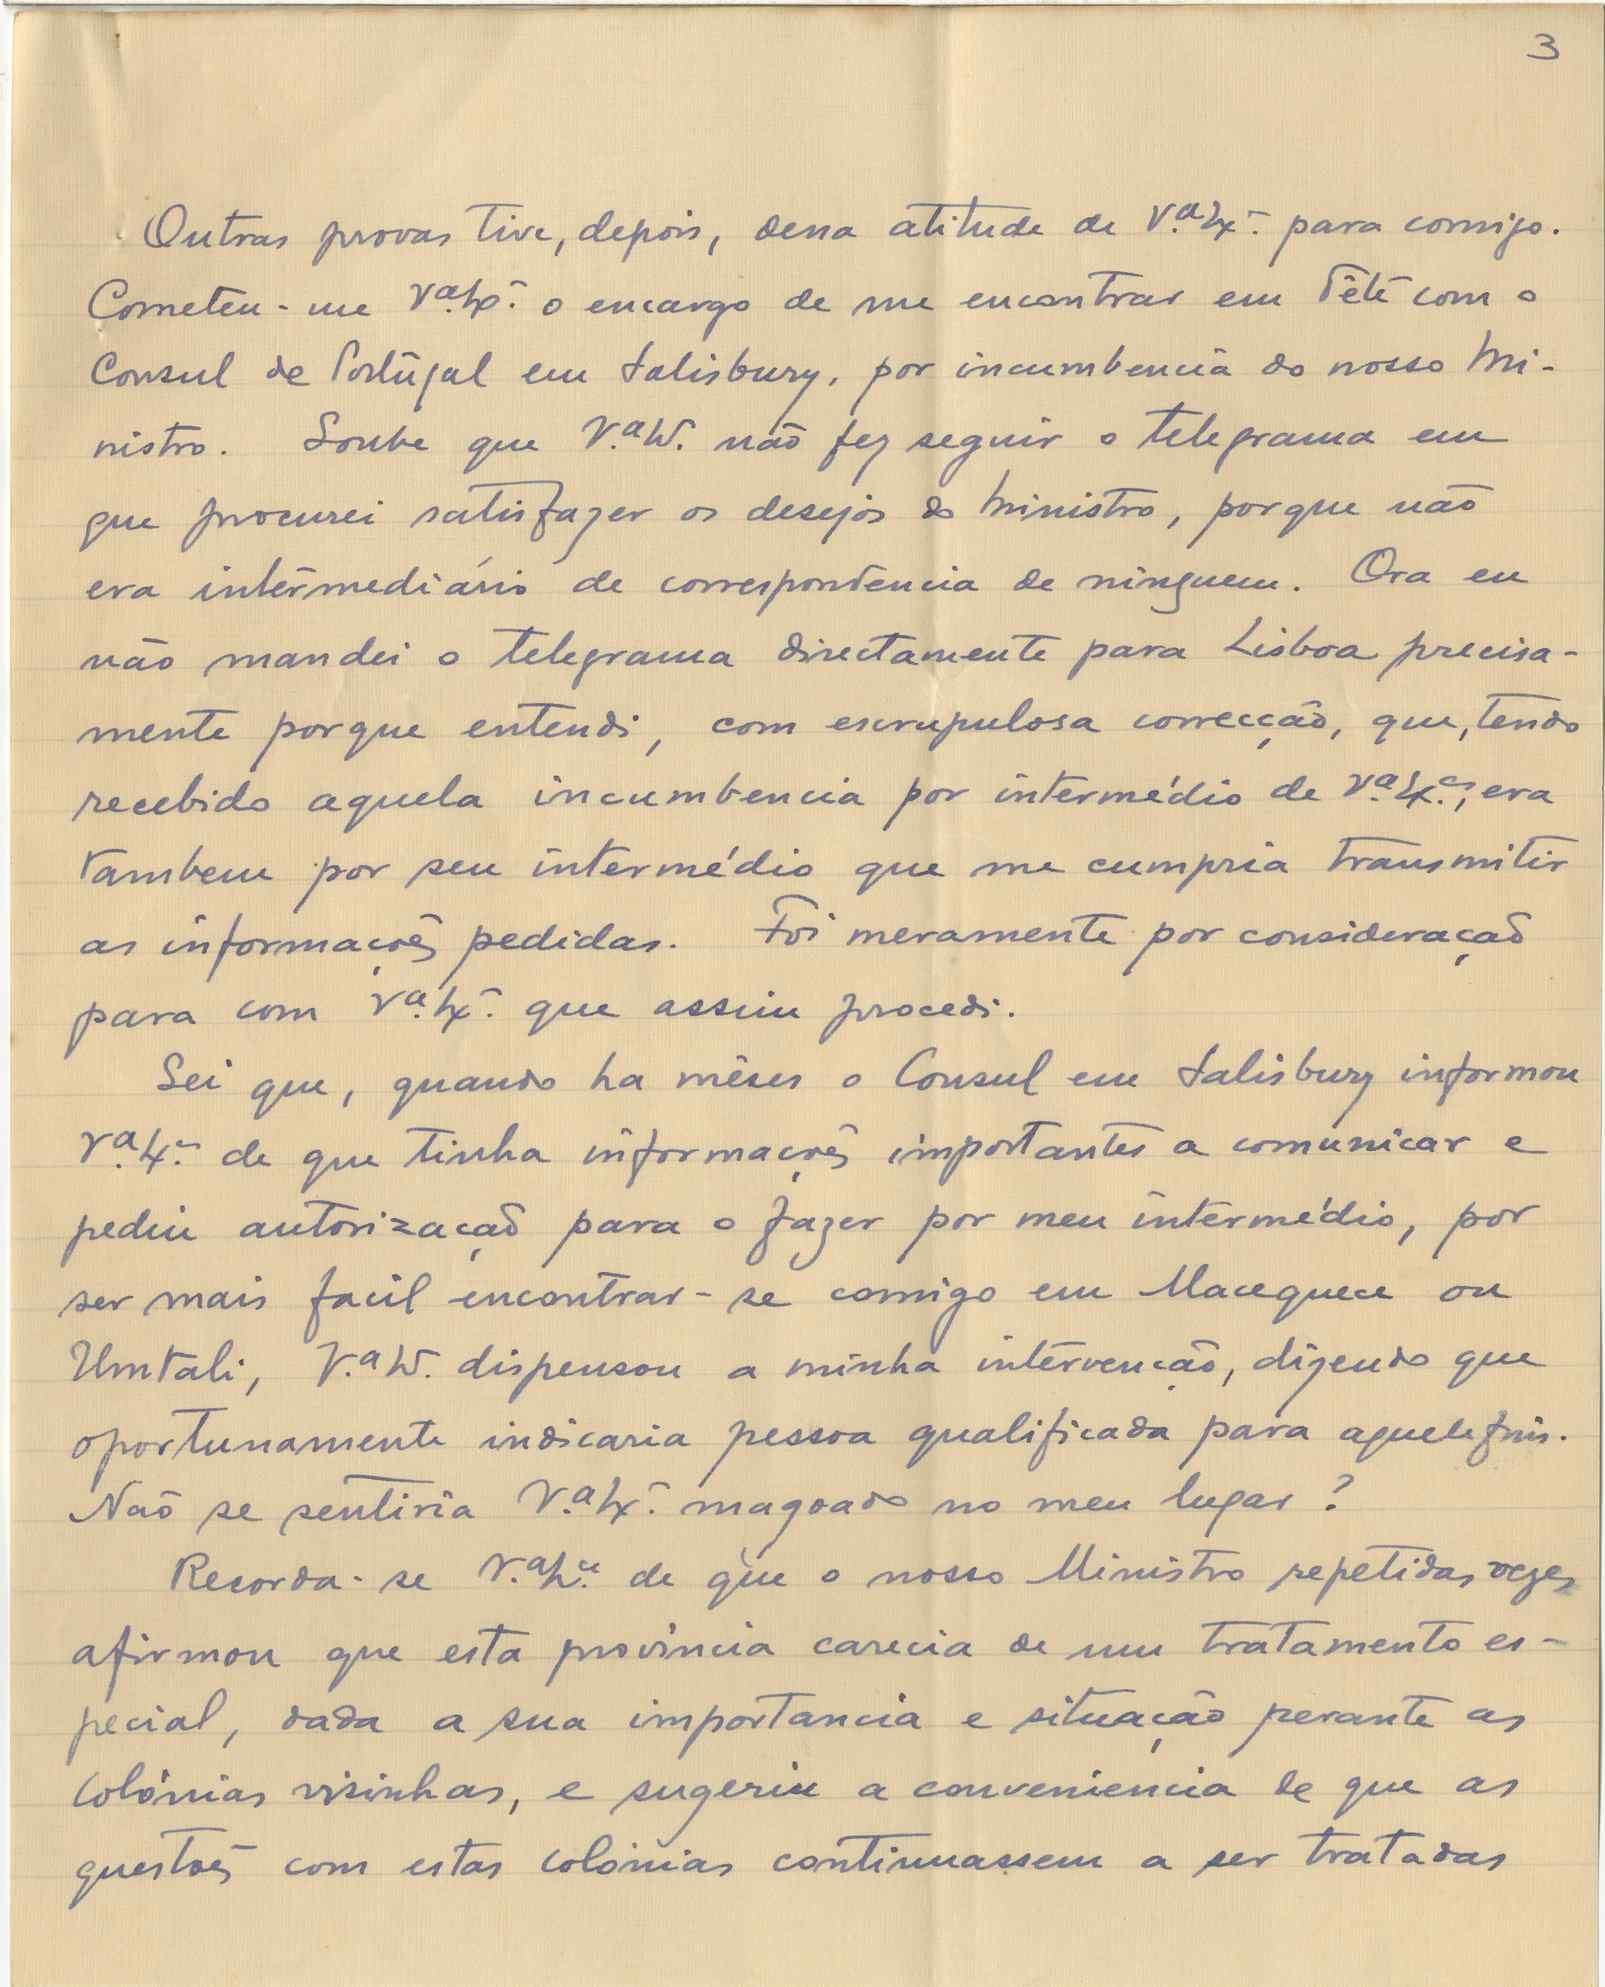 3
Outras provas tive, depois, dessa atitude de V.ª Ex.ª para comigo.
Cometeu-me V.ª Ex.ª o encargo de me encontrar em Téte com o
Consul de Portugal em Salisbury, por incumbencia do nosso Mi-
nistro. Soube que V.ª Ex. não fez seguir o telegrama em
que procurei satisfazer os desejos do Ministro, porque não
era intermediário de correspondencia de ninguem. Ora eu
não mandei o telegrama directamente para Lisboa precisa-
mente porque entendi, com escrupulosa correcção, que, tendo
recebido aquela incumbencia por intermédio de V.ª Ex.ª, era
tambem por seu intermédio que me cumpria transmitir
as informações pedidas. Foi meramente por consideração
para com V.ª Ex.ª que assim procedi.
Sei que, quando ha mêses o Consul em Salisbury informou
V.ª Ex.ª de que tinha informações importantes a comunicar e
pediu autorização para o fazer por meu intermédio, por
ser mais facil encontrar-se comigo em Macequece ou
Umtali, V.ª Ex. dispensou a minha intervenção, dizendo que
oportunamente indicaria pessoa qualificada para aquele fim.
Não se sentiria V.ª Ex.ª magoado no meu lugar?
Recorda-se V.ª Ex.ª de que o nosso Ministro repetidas vezes
afirmou que esta provincia carecia de um tratamento es-
pecial, dada a sua importancia e situação perante as
colónias visinhas, e sugeriu a conveniencia de que as
questões com estas colónias continuassem a ser tratadas